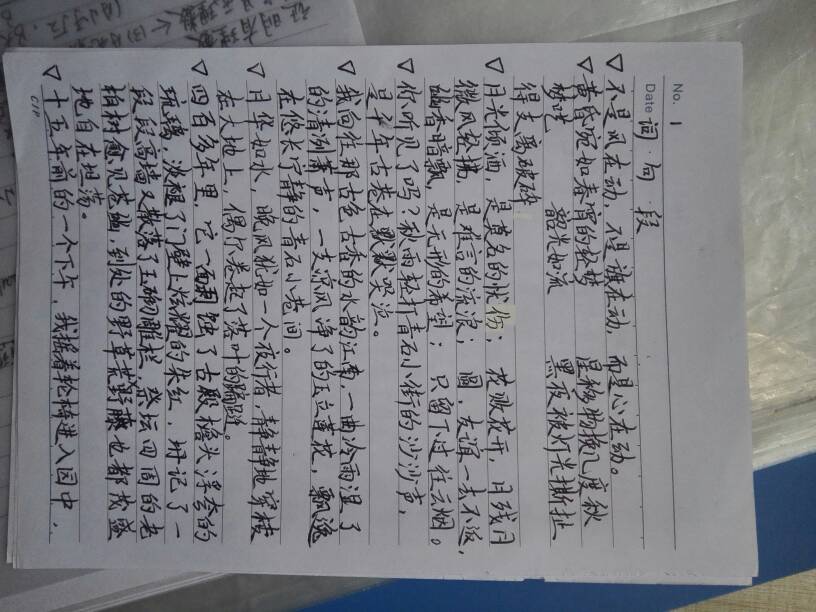 No. 1
Date 词 句 段
▽ 不是风在动，不是旗在动，而是心在动。
▽ 黄昏宛如春宵的轻梦 星移物换几度秋
韶光如流 黑夜被灯光撕扯
得支离破碎
▽ 月光倾洒，是莫名的忧伤； 花败花开，月残月
微风轻拂，是难言的流浪； 圆，友谊一去不返，
幽香暗飘，是无形的希望； 只留下过往云烟。
▽ 你听见了吗？秋雨轻打青石小街的沙沙声，
是千年古巷在默默哭泣。
▽ 我向往那古色古香的水韵江南，一曲冷雨湿了
的清冽萧声，一支凉风净了的玉立莲花，飘逸
在悠长宁静的青石小巷间。
▽ 月华如水，晚风犹如一个夜行者，静静地穿梭
在大地上，偶尔卷起了落叶的蹁跹。
▽ 四百多年里，它一面剥蚀了古殿檐头浮夸的
琉璃，淡褪了门壁上炫耀的朱红，坍圮了一
段段高墙又散落了玉砌雕栏，祭坛四周的老
柏树愈见苍幽，到处的野草荒藤也都茂盛
地自在坦荡。
▽ 十五年前的一个下午，我摇着轮椅进入园中，